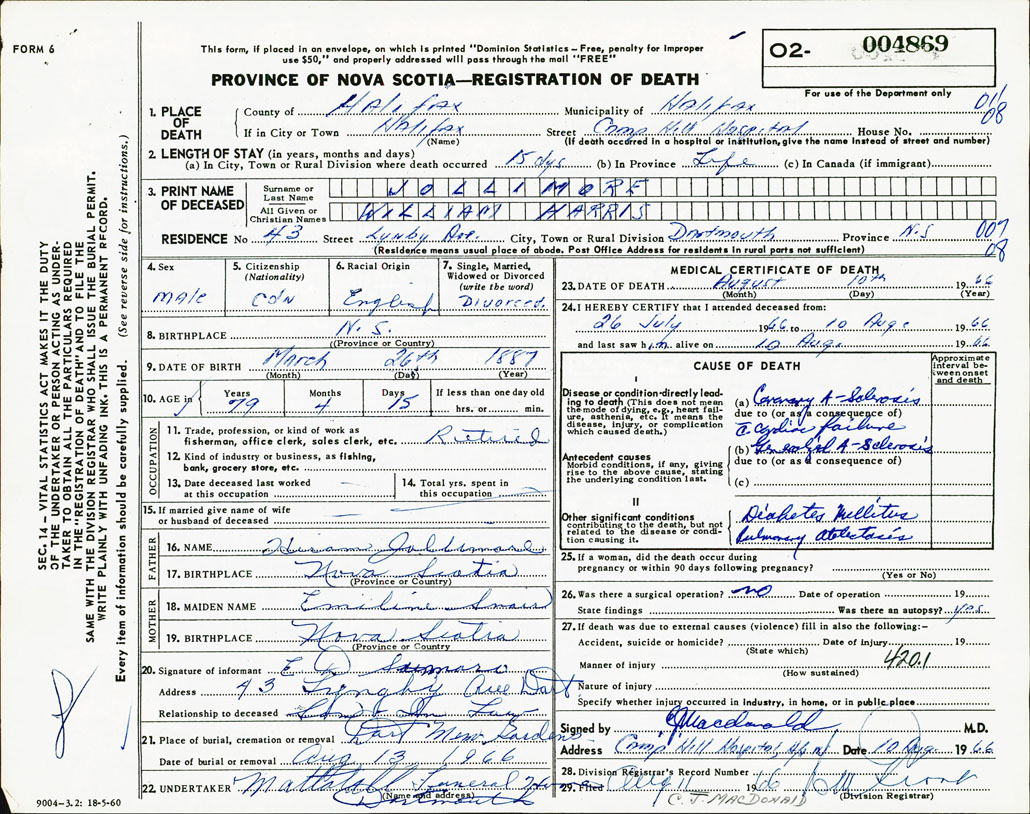 FORM 6
This form, if placed in an envelope, on which is printed "Dominion Statistics – Free, penalty for improper
use $50," and properly addressed will pass through the mail "FREE"
PROVINCE OF NOVA SCOTIA—REGISTRATION OF DEATH
O2- 004869
For use of the Department only
1. PLACE OF DEATH County of Halifax Municipality of Halifax 011
If in City or Town Halifax Street Camp Hill Hospital House No. 08
(Name) (If death occurred in a hospital or institution, give the name instead of street and number)
2. LENGTH OF STAY (in years, months and days)
(a) In City, Town or Rural Division where death occurred 15 dys (b) In Province Life (c) In Canada (if immigrant)
3. PRINT NAME OF DECEASED Surname or Last Name JOLLIMORE
All Given or Christian Names WILLIAM HARRIS
RESIDENCE No 43 Street Lynby Ave. City, Town or Rural Division Dartmouth Province N.S 007
(Residence means usual place of abode. Post Office Address for residents in rural parts not sufficient) 08
4. Sex Male
5. Citizenship (Nationality) CDN
6. Racial Origin English
7. Single, Married, Widowed or Divorced (write the word) Divorced.
8. BIRTHPLACE N. S.
(Province or Country)
9. DATE OF BIRTH March 26th 1887
(Month) (Day) (Year)
10. AGE in Years 79 Months 4 Days 15 If less than one day old hrs. or min.
OCCUPATION
11. Trade, profession, or kind of work as
fisherman, office clerk, sales clerk, etc. Retired
12. Kind of industry or business, as fishing,
bank, grocery store, etc.
13. Date deceased last worked
at this occupation
14. Total yrs. spent in
this occupation
15. If married give name of wife
or husband of deceased
FATHER
16. NAME Hiram Jollimore
17. BIRTHPLACE Nova Scotia
(Province or Country)
MOTHER
18. MAIDEN NAME Emiline
19. BIRTHPLACE Nova Scotia
(Province or Country)
20. Signature of informant E
Address 43 Lyngby Ave Dart
Relationship to deceased Son in Law
21. Place of burial, cremation or removal Dart Mem Gardens
Date of burial or removal Aug 13 1966
22. UNDERTAKER Mattatall Funeral Home
(Name and address) Dartmouth
9004-3.2: 18-5-60
MEDICAL CERTIFICATE OF DEATH
23. DATE OF DEATH August 10th 1966
(Month) (Day) (Year)
24. I HEREBY CERTIFY that I attended deceased from:
26 July 1966 to 10 Aug. 1966
and last saw him alive on 10 Aug. 1966
CAUSE OF DEATH
Approximate interval between onset and death
I
Disease or condition directly leading to death (This does not mean the mode of dying, e.g., heart failure, asthenia, etc. It means the disease, injury, or complication which caused death.)
(a) Coronary A-Sclerosis
due to (or as a consequence of)
c̄ Cardiac failure
Antecedent causes
Morbid conditions, if any, giving rise to the above cause, stating the underlying condition last.
(b) Generalized A-Sclerosis
due to (or as a consequence of)
(c)
II
Other significant conditions
contributing to the death, but not related to the disease or condition causing it.
Diabetes Mellitus
Pulmonary Atelectasis
25. If a woman, did the death occur during
pregnancy or within 90 days following pregnancy?
(Yes or No)
26. Was there a surgical operation? no Date of operation 19
State findings Was there an autopsy? yes
27. If death was due to external causes (violence) fill in also the following:—
Accident, suicide or homicide? Date of injury 19
(State which)
Manner of injury 420.1
(How sustained)
Nature of injury
Specify whether injury occurred in industry, in home, or in public place
Signed by CJ Macdonald M.D.
Address Camp Hill Hospital, Date 10 Aug 1966
28. Division Registrar's Record Number
29. Filed Aug 11 1966
C. J. MACDONALD (Division Registrar)
SEC. 14 — VITAL STATISTICS ACT MAKES IT THE DUTY
OF THE UNDERTAKER OR PERSON ACTING AS UNDERTAKER TO OBTAIN ALL THE PARTICULARS REQUIRED
IN THE "REGISTRATION OF DEATH" AND TO FILE THE
SAME WITH THE DIVISION REGISTRAR WHO SHALL ISSUE THE BURIAL PERMIT.
WRITE PLAINLY WITH UNFADING INK. THIS IS A PERMANENT RECORD.
Every item of information should be carefully supplied. (See reverse side for instructions.)